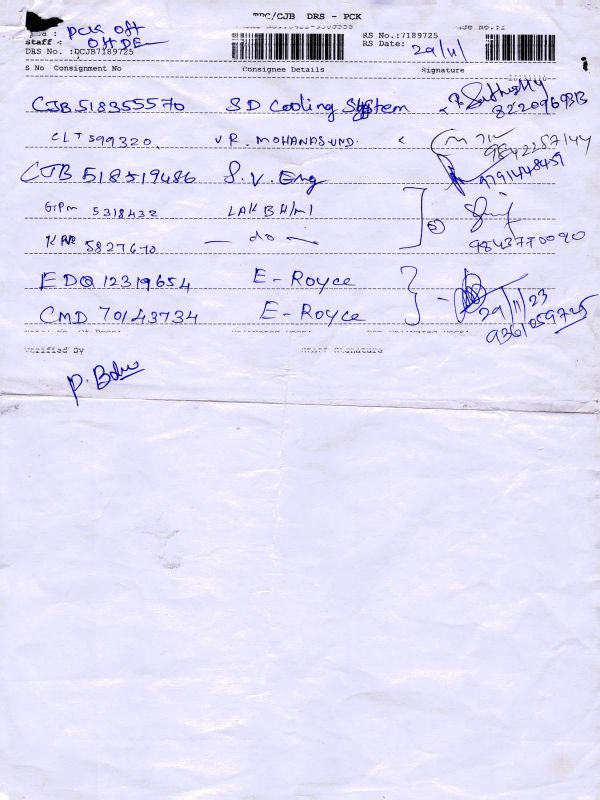 TPC/CJB DRS - PCK
PCK Off
Staff : OffDE
DRS No. :DCJB7189725
RS No.:7189725
RS Date: 29/11
S No Consignment No Consignee Details Signature
CJB 518355570 SD Cooling System 8220969313
CLT 599320. V R. MOHANASUND. 9842287144
CJB 518519486 S.V. Eng 9791448459
5318432
5827670 — do — 9843770090
EDQ 12319654 E-Royce
CMD 70143734 E-Royce 29/11/23
9361059725
Verified By Staff Signature
P. Babu